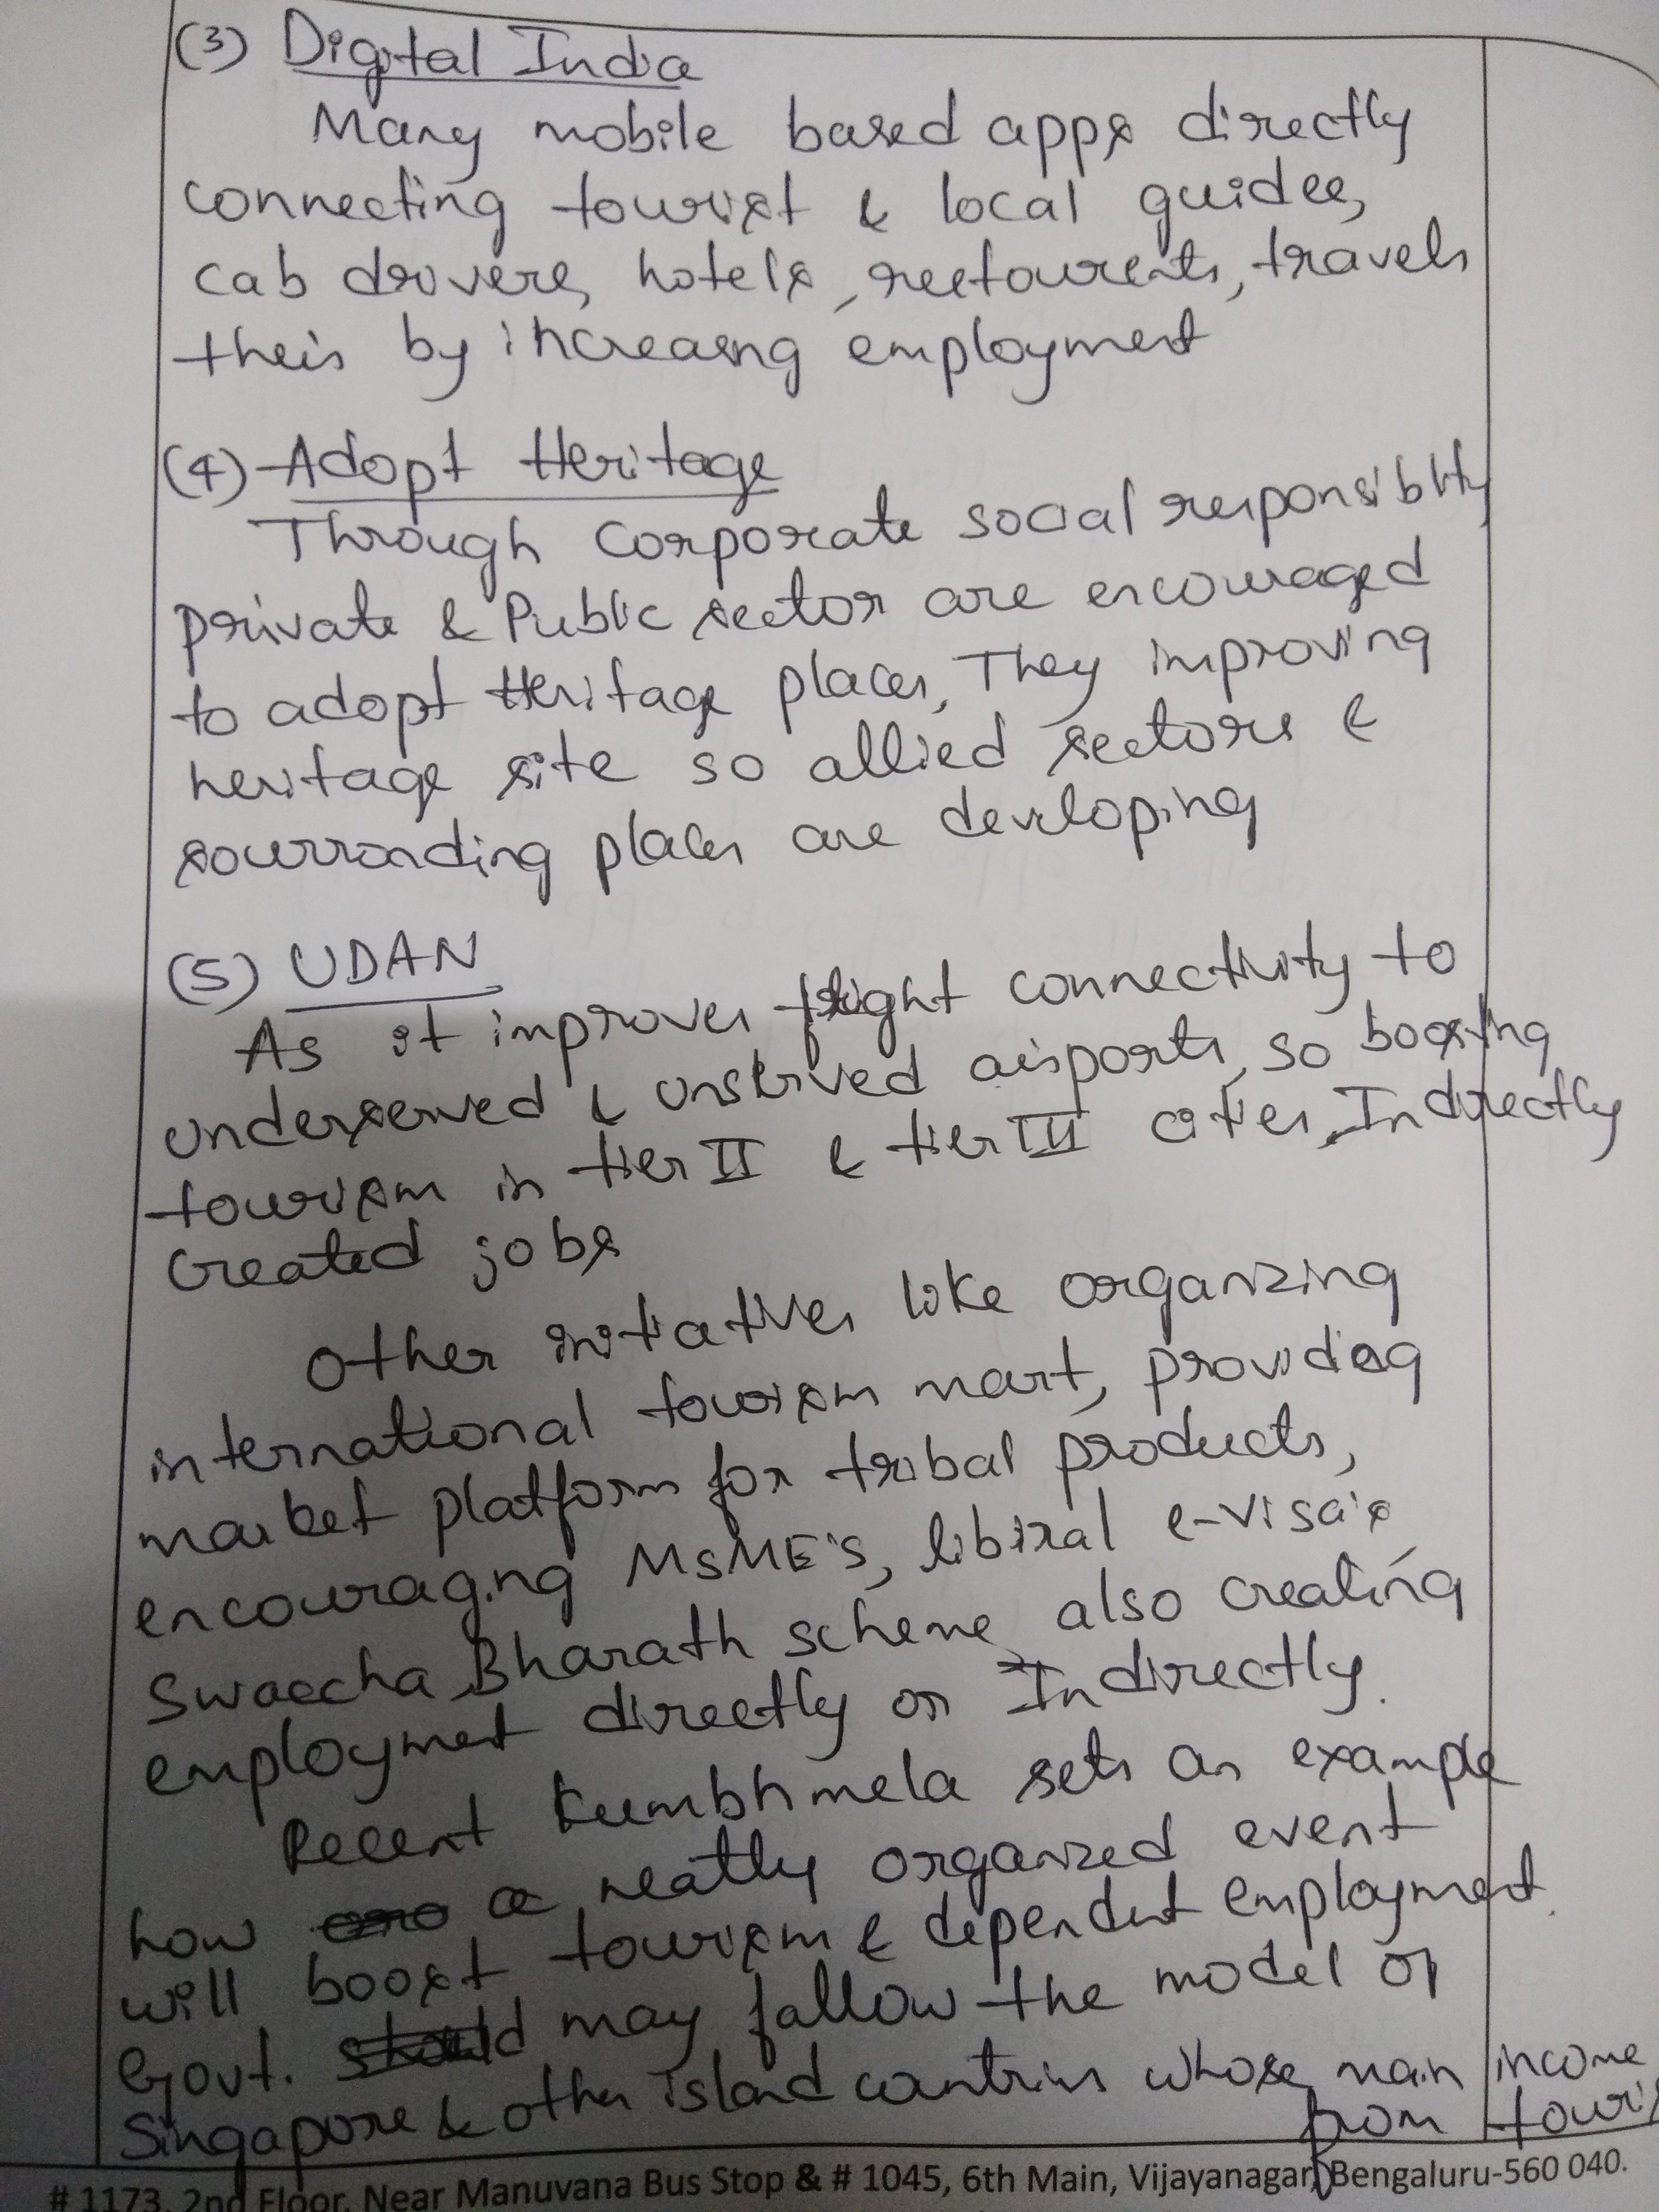 (3) Digital India
Many mobile based apps directly
connecting tourist & local guides,
cab drivers, hotels, restourents, travels
their by increasng employment
(4) Adopt Heritage
Through Corporate social responsiblity
private & Public sector are encouraged
to adopt Heritage places, They improving
heritage site so allied sectors &
sourronding places are developing
(5) UDAN
As it improves flight connectivity to
underserved & unserved airports, so boosting
tourism in tier II & tier III cities, Indirectly
created jobs
Other initiatives like organizing
international tourism mart, providing
market platform for tribal products,
encouraging MSME'S, libiral e-visa's
Swaccha Bharath scheme also creating
employment directly or Indirectly.
Recent kumbhmela sets an example
how a neatly organized event
will boost tourism & dependent employment.
Govt. may fallow the model of
Singapore & other island countries whose main income
from touris
# 1173, 2nd Floor, Near Manuvana Bus Stop & # 1045, 6th Main, Vijayanagar, Bengaluru-560 040.